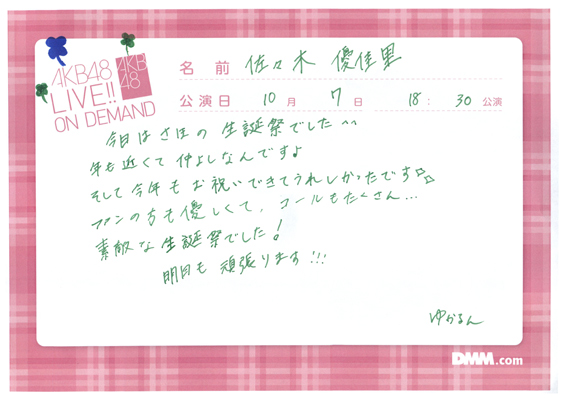 AKB48
LIVE!!
ON DEMAND
AKB
48
名前 佐々木 優佳里
公演日 10月 7日 18:30公演
今日はさほの生誕祭でした^^
年も近くて仲よしなんです♪
そして今年もお祝いできてうれしかったです☆☆
ファンの方も優しくて、コールもたくさん...
素敵な生誕祭でした!
明日も頑張ります!!!
ゆかるん
DMM.com